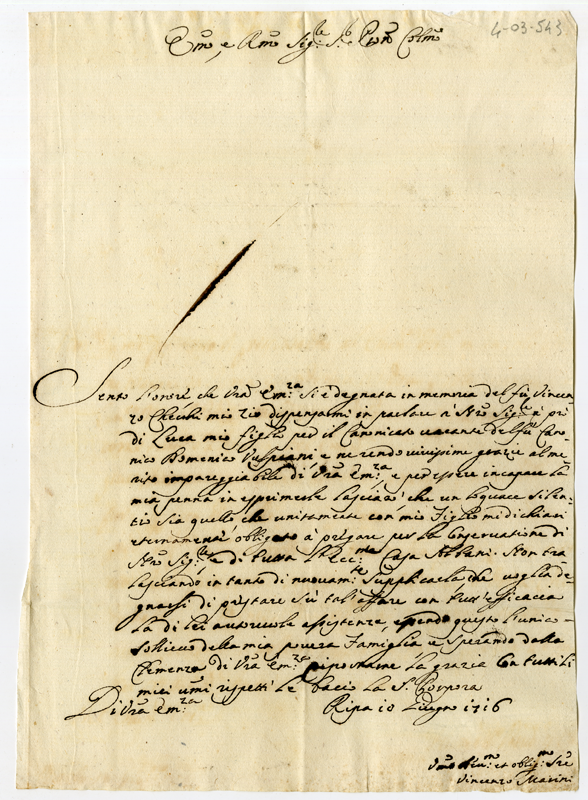 4-03-543
Em̃o, e Rm̃o Sig.re S.r Pron̄ Colm̃o
Sento l'onore che Vrã Em.za si è degnata in memoria del fù Vincen=
zo Checchi mio Zio dispensarmi in parlare à Nr̃o Sig.re à prò
di Luca mio figlio per il Canonicato vacante del fù Cano=
nico Domenico Vulpiani e ne rendo vivissime grazie al me=
rito impareggiabile di Vrã Em.za, e per essere incapace la
mia penna in esprimerle lasciarò che un loquace silen=
tio sia quello che unitamente con mio figlio mi dichiari
eternamente obligato à pregare per la conservatione di
Nrõ Sig.re e di tutta l'Ecc.ma Casa Albani: Non tra=
lasciando in tanto di nuovam.te Supplicarla che voglia de=
gnarsi di prestare sù tal'affare con tutt'efficacia
la di lei autorevole assistenza, essendo questo l'unico
sollievo della mia povera famiglia e sperando dalla
Clemenza di Vrã Em.za riportarne la grazia con tutti li
miei um̃i rispetti le bacio la S. Porpora
Di Vrã Em.za Ripa 10 Giugno 1716
Vm̃o Dev.mo et oblig.mo Sre
Vincenzo Marini